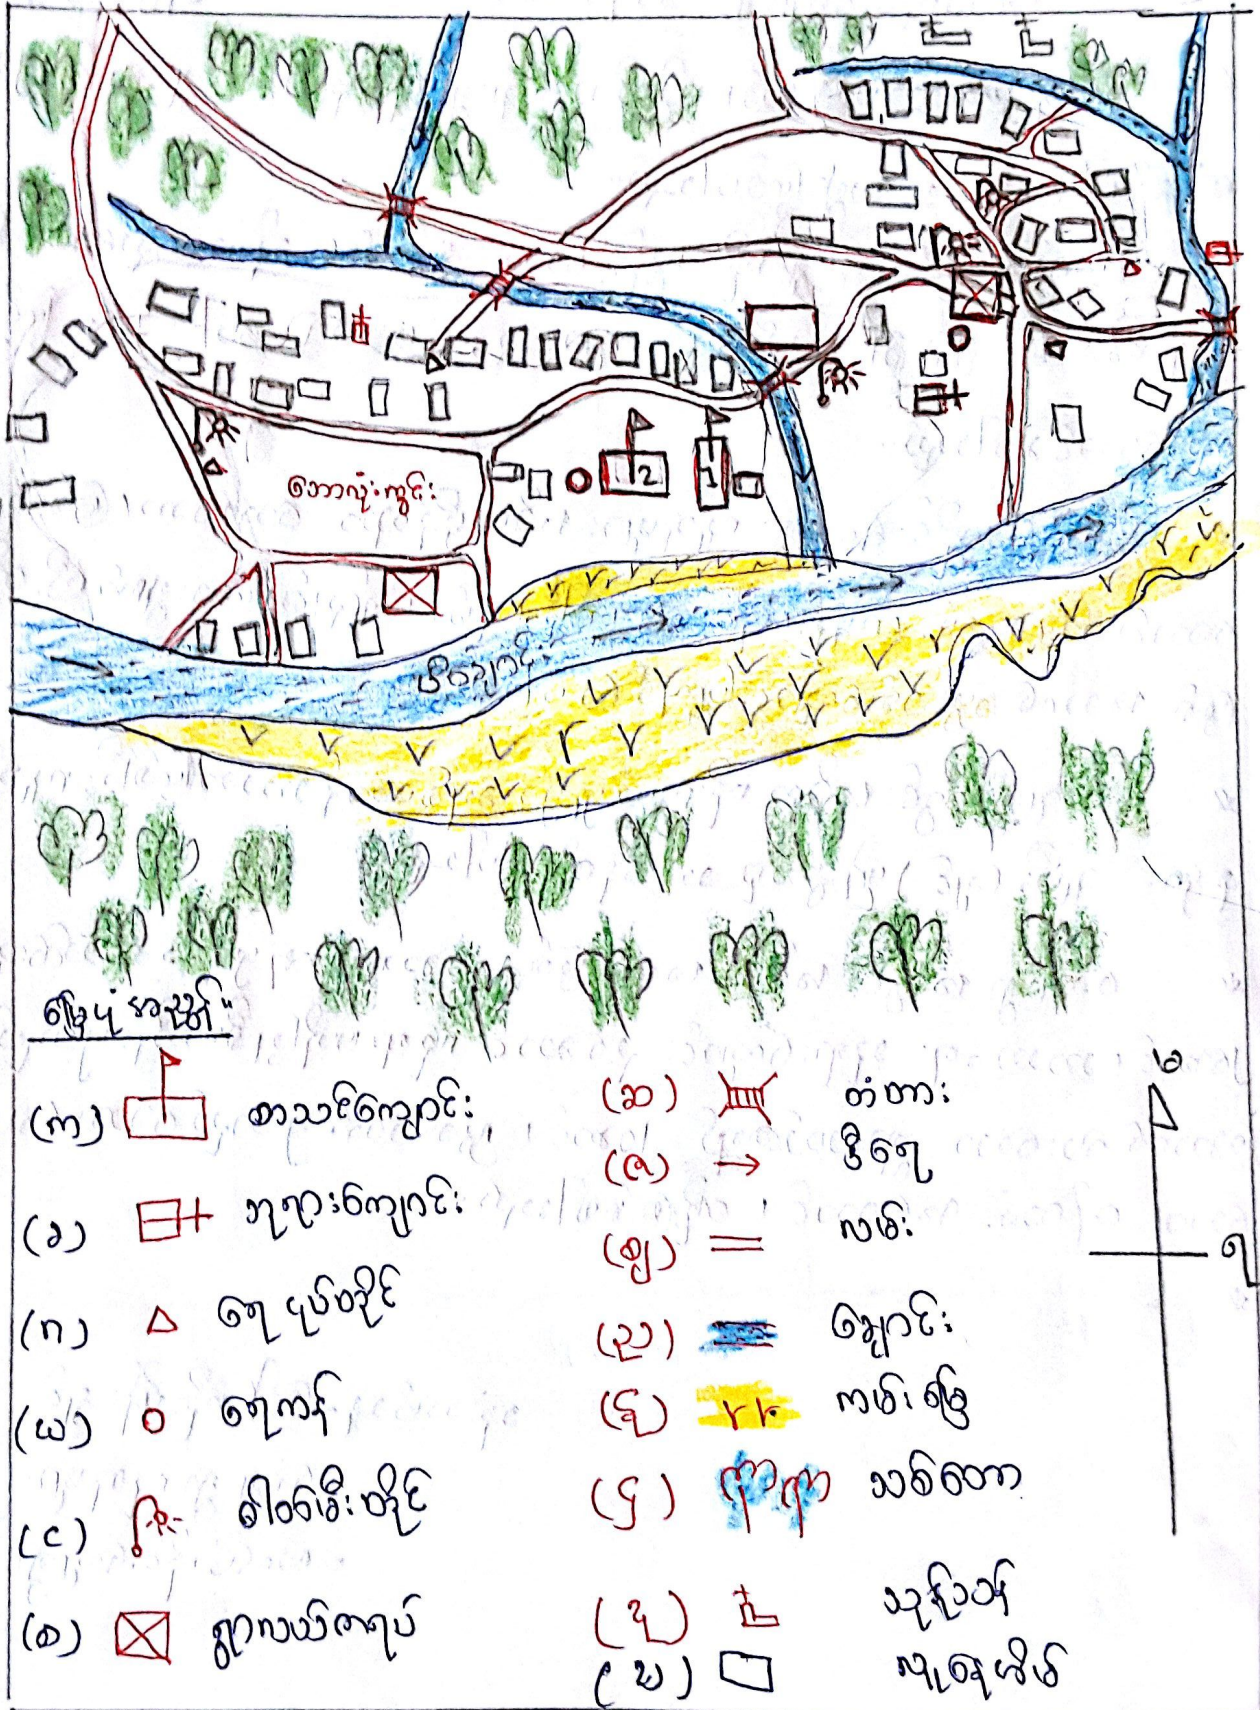 ဘောလုံးကွင်း
2
1
မြေပုံအညွှန်း
(က) စာသင်ကျောင်း
(ခ) ဘုရားကျောင်း
(ဂ) ရေငုပ်စိုင်
(ဃ) ရေကန်
(င) ဓါတ်မီးတိုင်
(စ) ရွာလယ်ဇရပ်
(ဆ) တံတား
(ဇ) စီးရေ
(ဈ) လမ်း
(ည) ချောင်း
(ဋ) ကမ်းမြေ
(ဌ) သစ်တော
(ဍ) သုဿန်
(ဎ) လူနေအိမ်